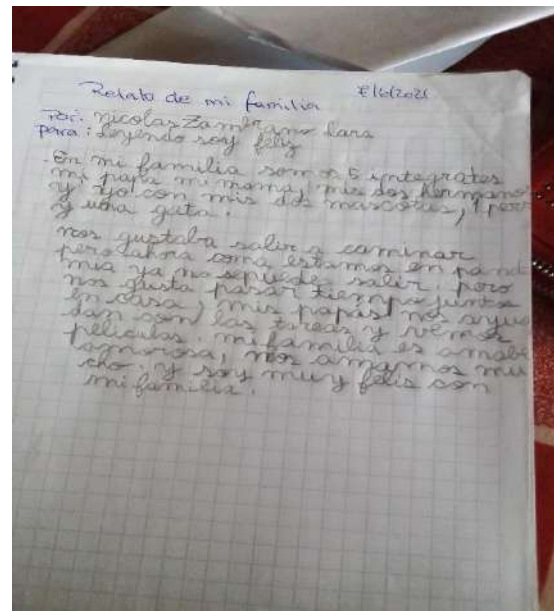 Relato de mi familia 8/6/2021
Por: Nicolas Zambrano Lara
para: Leyendo soy feliz
En mi familia somos 5 integrates
mi papa mi mama, mis dos hermano
y yo con mis dos mascotas, 1 perr
y una gata.
nos gustaba salir a caminar
pero ahora como estamos en pand
mia ya no se puede salir. pero
nos gusta pasar tiempo juntos
en casa, mis papas nos ayu
dan con las tareas y vemos
peliculas. mi familia es amabl
amorosa, nos amamos mu
cho. y soy muy felis con
mi familia.